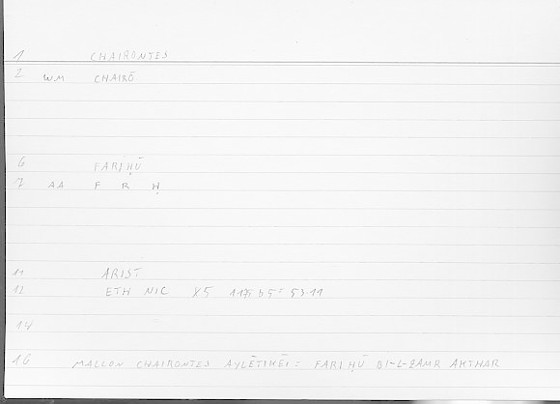 1 CHAIRONTES
2 WM CHAIRŌ
6 FARIḤŪ
7 AA F R Ḥ
11 ARIST
12 ETH NIC X5 1175 b5 = 5311
14
16 MALLON CHAIRONTES AYLĒTIKĒI = FARIḤŪ BI-L-ZAMR AKTHAR